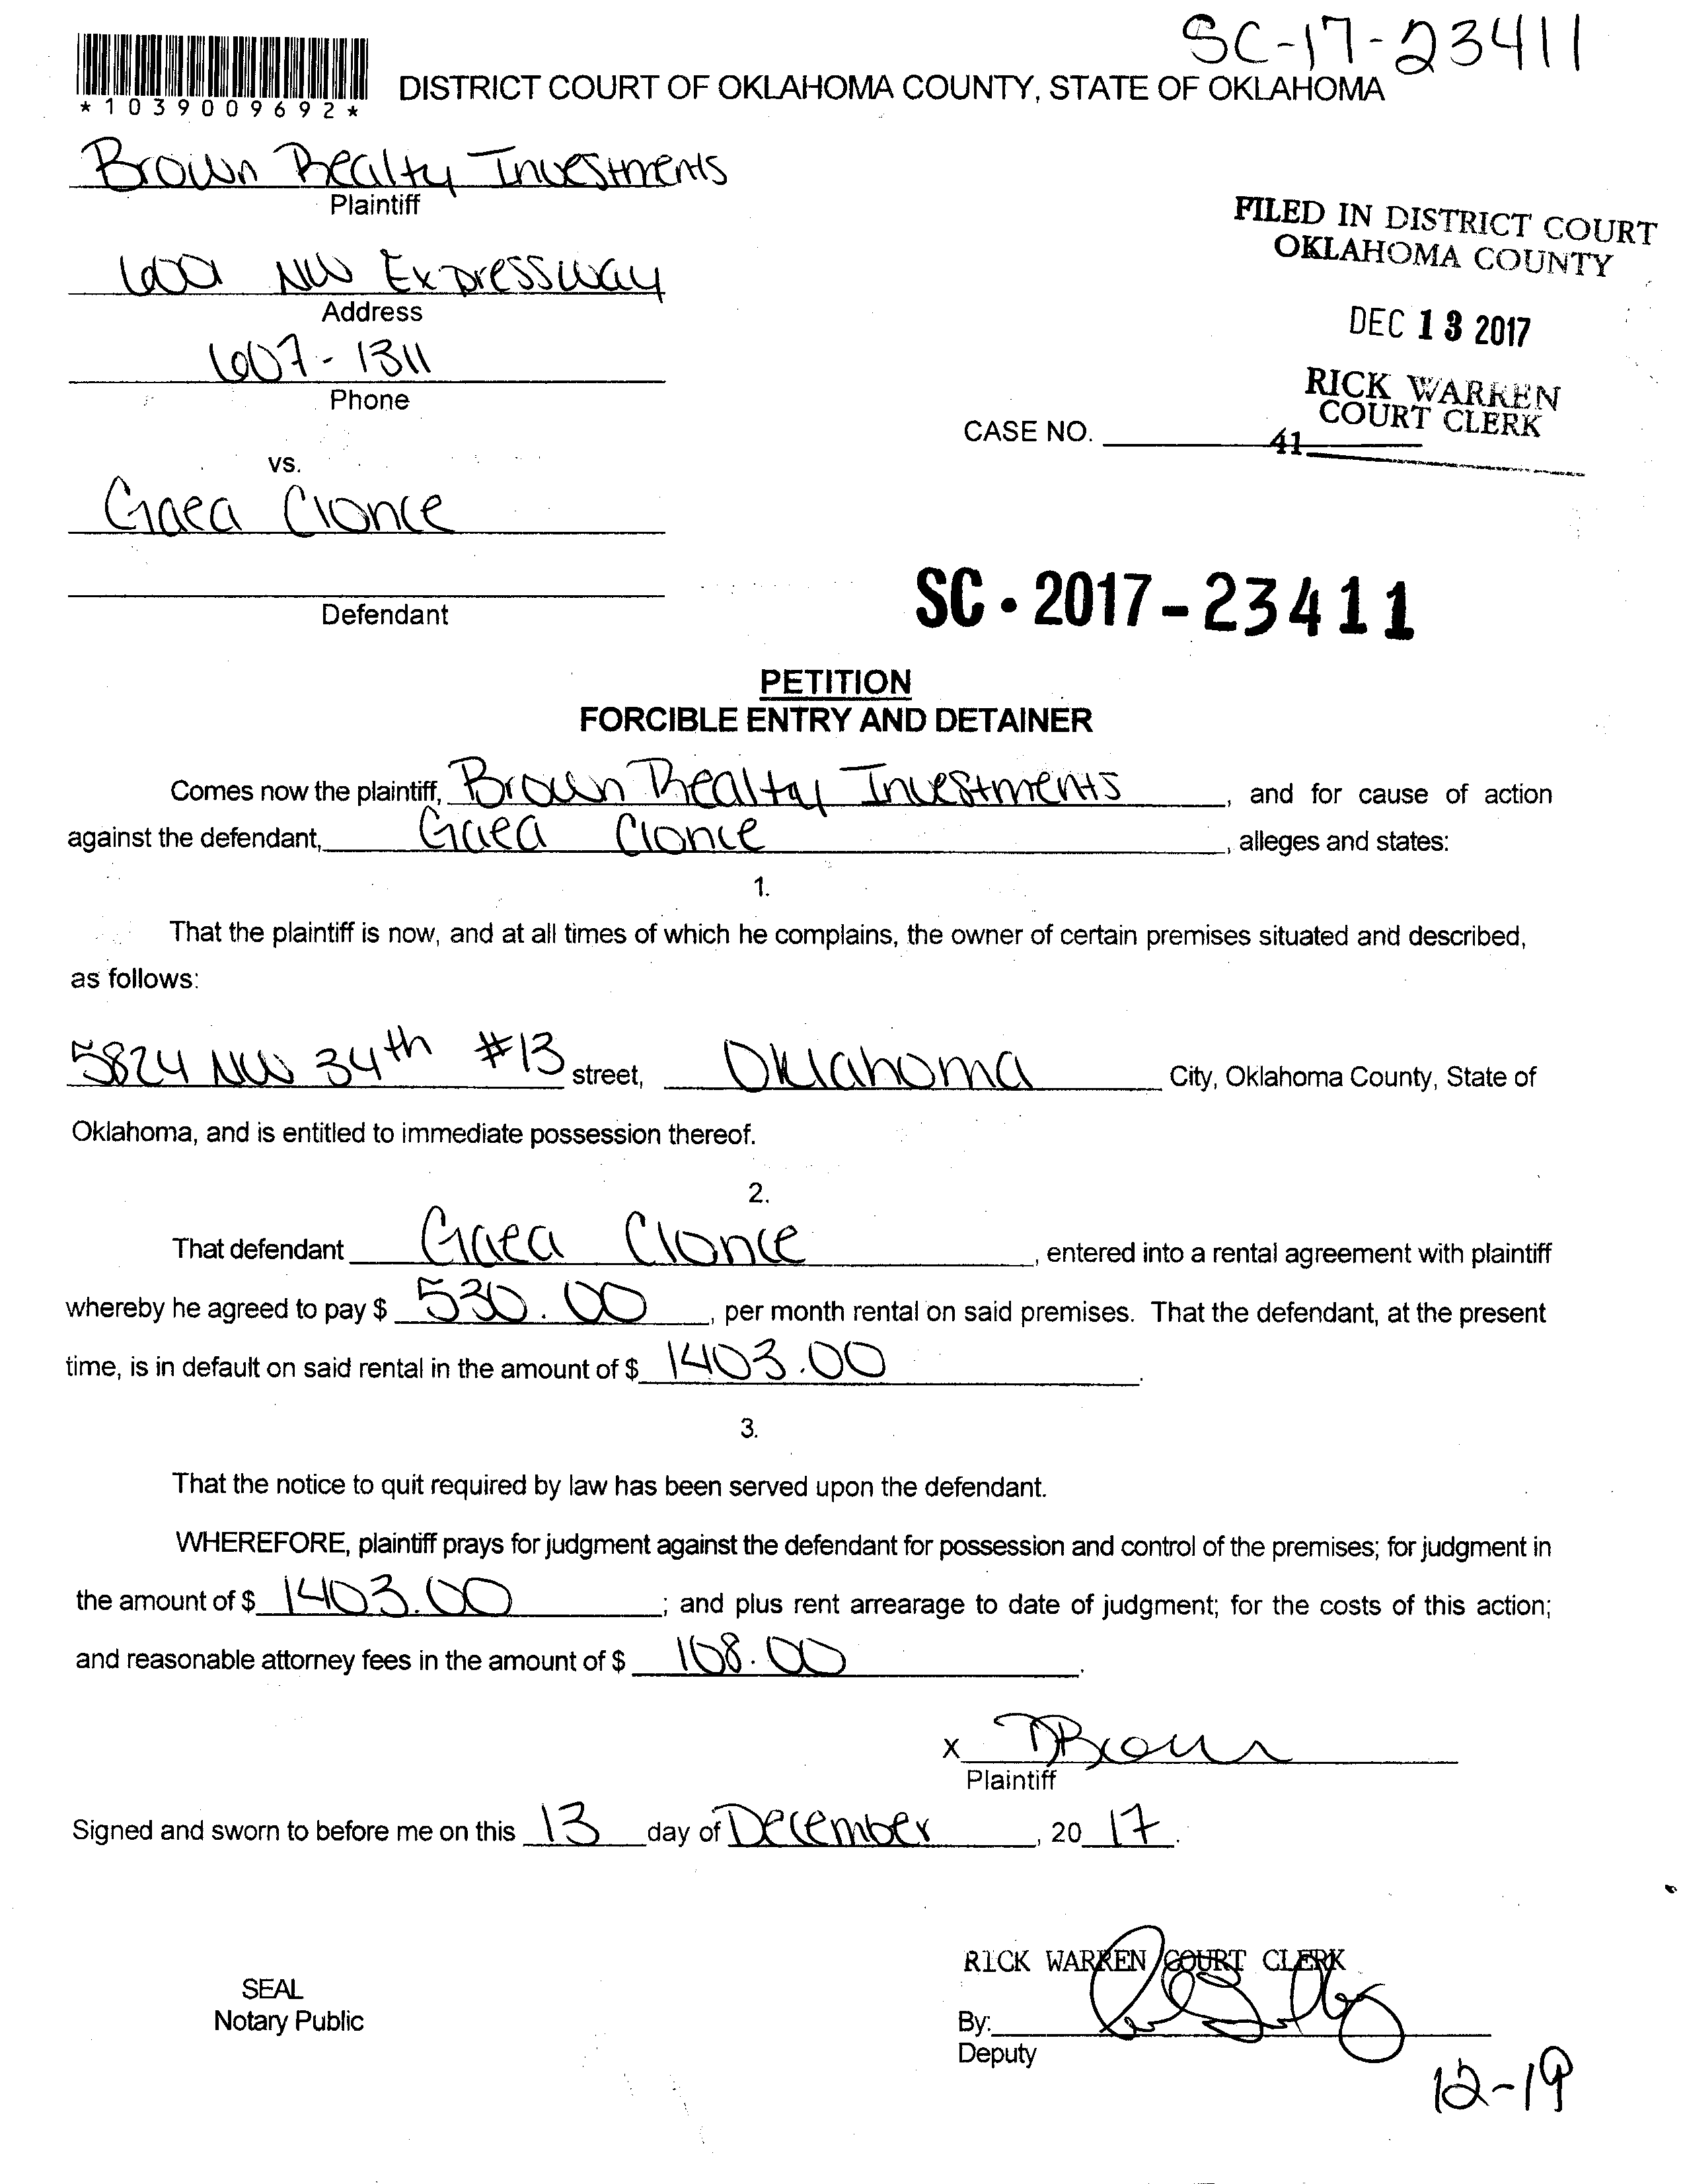 SC-17-23411
*1039009692*
DISTRICT COURT OF OKLAHOMA COUNTY, STATE OF OKLAHOMA
Brown Realty Investments
Plaintiff
FILED IN DISTRICT COURT
OKLAHOMA COUNTY
NW Expressway
Address
DEC 13 2017
607-1311
Phone
RICK WARREN
COURT CLERK
CASE NO.
41
vs.
Gaea Clonce
Defendant
SC-2017-23411
PETITION
FORCIBLE ENTRY AND DETAINER
Comes now the plaintiff, Brown Realty Investments, and for cause of action
against the defendant, Gaea Clonce, alleges and states:
1.
That the plaintiff is now, and at all times of which he complains, the owner of certain premises situated and described,
as follows:
5824 NW 34th #13 street, Oklahoma City, Oklahoma County, State of
Oklahoma, and is entitled to immediate possession thereof.
2.
That defendant Gaea Clonce, entered into a rental agreement with plaintiff
whereby he agreed to pay $ 530.00, per month rental on said premises. That the defendant, at the present
time, is in default on said rental in the amount of $ 1403.00.
3.
That the notice to quit required by law has been served upon the defendant.
WHEREFORE, plaintiff prays for judgment against the defendant for possession and control of the premises; for judgment in
the amount of $ 1403.00; and plus rent arrearage to date of judgment; for the costs of this action;
and reasonable attorney fees in the amount of $ 168.00.
x Brown
Plaintiff
Signed and sworn to before me on this 13 day of December, 2017.
RICK WARREN COURT CLERK
SEAL
Notary Public
By:
Deputy
12-19